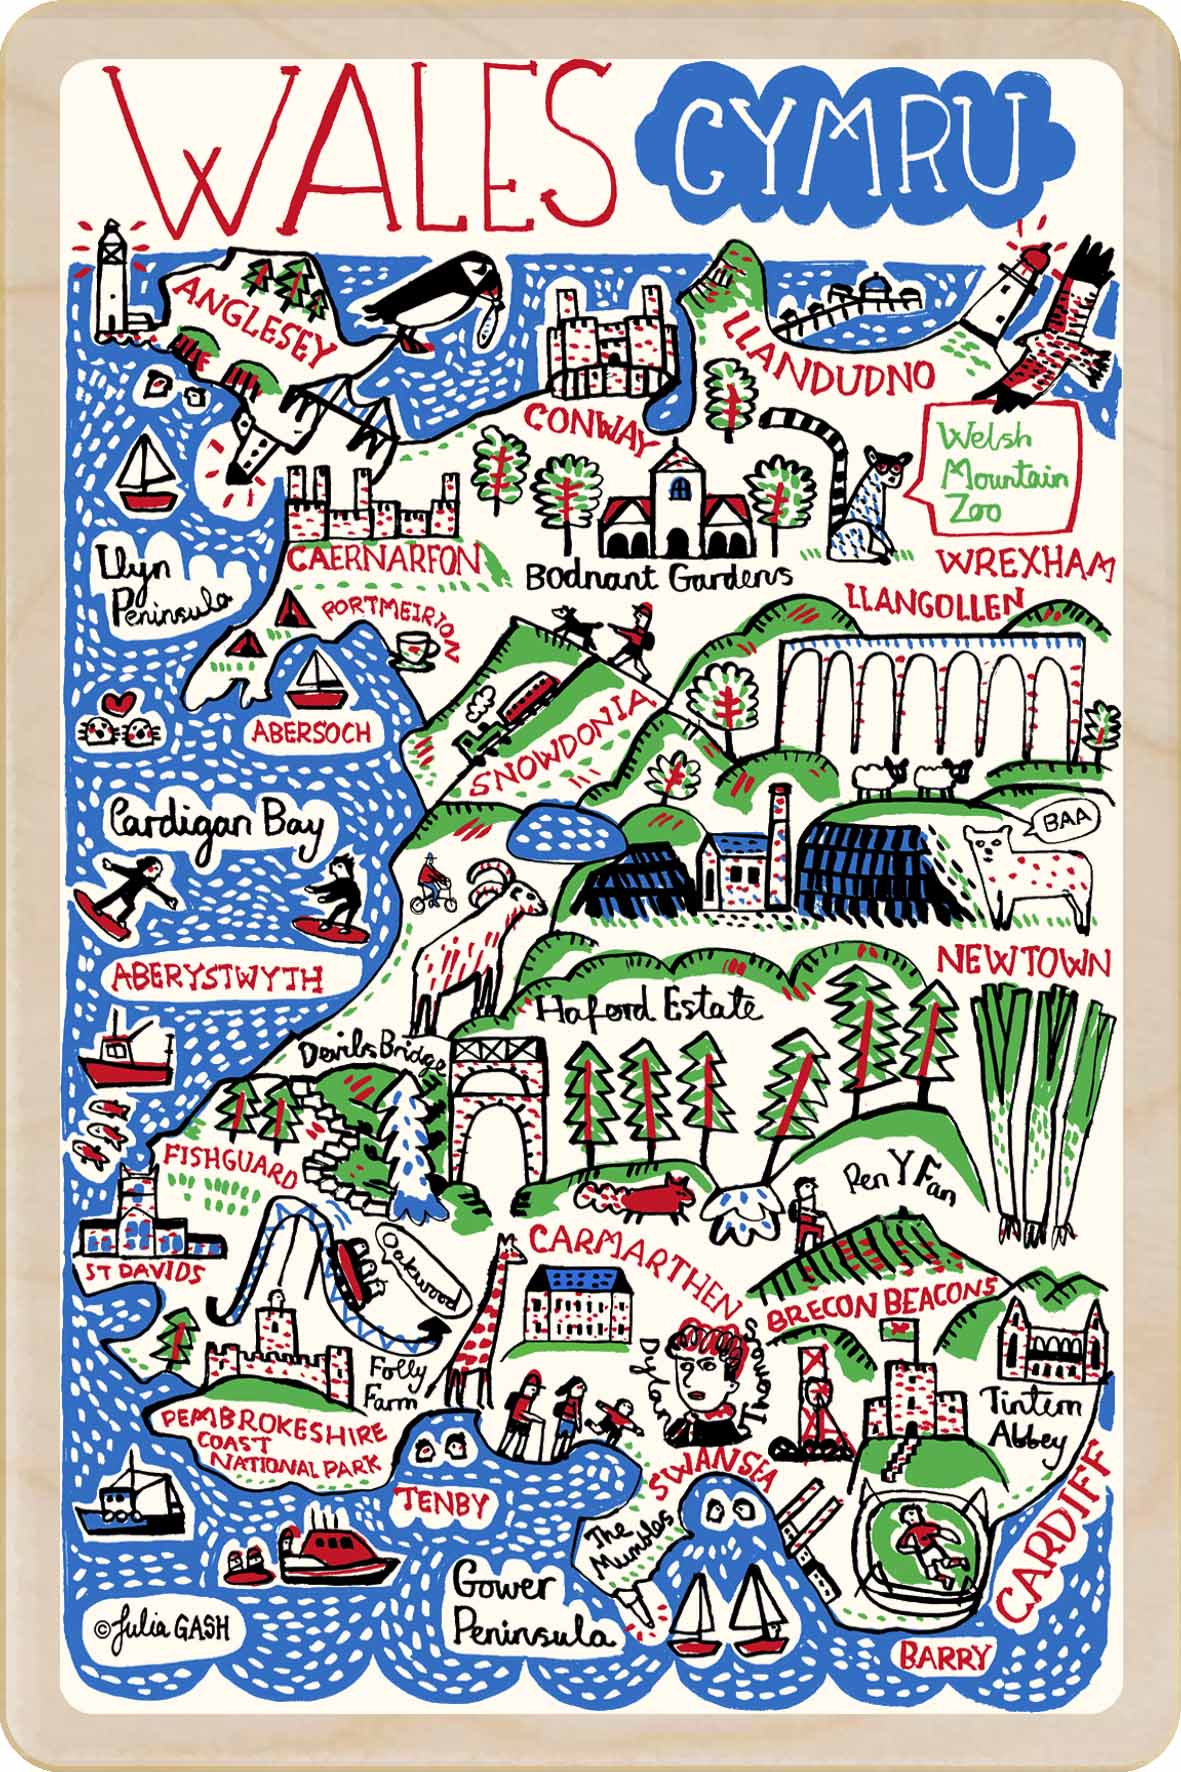 WALES
CYMRU
ANGLESEY
LLANDUDNO
CONWAY
Welsh
Mountain
Zoo
CAERNARFON
Bodnant Gardens
WREXHAM
Llyn
Peninsula
PORTMEIRION
LLANGOLLEN
ABERSOCH
SNOWDONIA
Cardigan Bay
BAA
ABERYSTWYTH
NEWTOWN
Haford Estate
Devils Bridge
FISHGUARD
Pen Y Fan
ST DAVIDS
Oakwood
CARMARTHEN
BRECON BEACONS
Folly
Farm
Dylan
Thomas
Tintern
Abbey
PEMBROKESHIRE
COAST
NATIONAL PARK
TENBY
SWANSEA
The
Mumbles
CARDIFF
Gower
Peninsula
© Julia GASH
BARRY